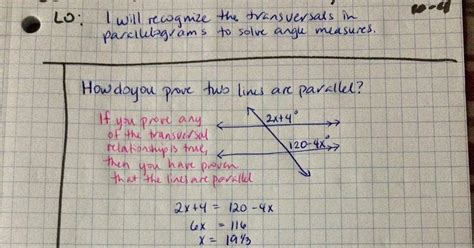 10-4
LO: I will recognize the transversals in
parallelograms to solve angle measures.
How do you prove two lines are parallel?
If you prove any
of the transversal
relationship is true,
then you have proven
that the lines are parallel
2x+4°
120-4x°
2x+4 = 120-4x
6x = 116
x = 19⅓